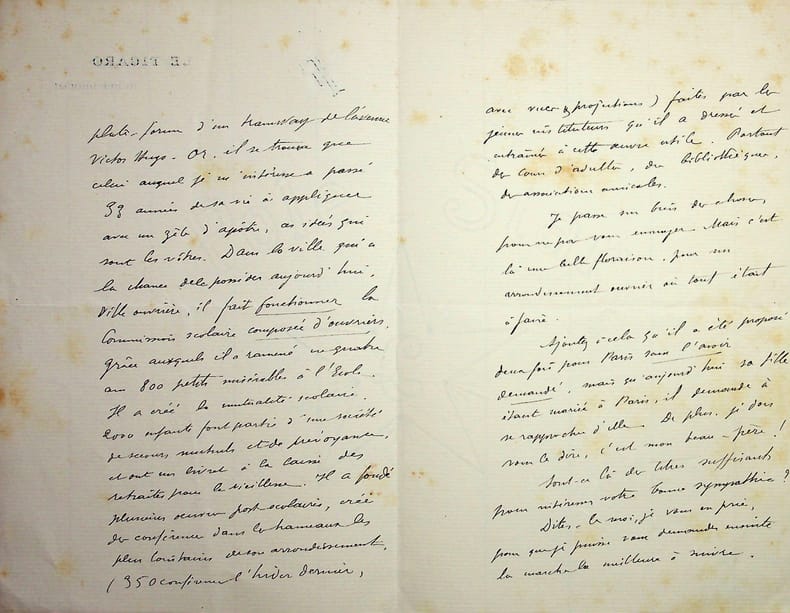 LE FIGARO
plate-forme d'un tramway de l'avenue
Victor Hugo. Or, il se trouve que
celui auquel je m'intéresse a passé
33 années de sa vie à appliquer
avec un zèle d'apôtre, les idées qui
sont les vôtres. Dans la ville qui a
la chance de le posséder aujourd'hui,
ville ouvrière, il fait fonctionner la
Commission scolaire composée d'ouvriers,
grâce auxquels il a ramené en quatre
ans 800 petits misérables à l'École.
Il a créé la mutualité scolaire.
2000 enfants font partie d'une société
de secours mutuels et de prévoyance,
et ont un livret à la caisse des
retraites pour la vieillesse. Il a fondé
plusieurs œuvres post-scolaires, créé
des conférences dans les hameaux les
plus lointains de son arrondissement,
(350 conférences l'hiver dernier,
avec vues & projections) faites par les
jeunes instituteurs qu'il a dressés et
entraînés à cette œuvre utile. Partout
des cours d'adultes, des bibliothèques,
des associations amicales.
Je passe sur bien des choses,
pour ne pas vous ennuyer. Mais c'est
là une belle floraison, pour un
arrondissement ouvrier où tout était
à faire.
Ajoutez à cela qu'il a été proposé
deux fois pour Paris sans l'avoir
demandé, mais qu'aujourd'hui sa fille
étant mariée à Paris, il demande à
se rapprocher d'elle. De plus, je dois
vous le dire, c'est mon beau-père !
Sont-ce là des titres suffisants
pour intéresser votre bonne sympathie ?
Dites-le moi, je vous en prie,
pour que je puisse vous demander ensuite
la marche la meilleure à suivre.